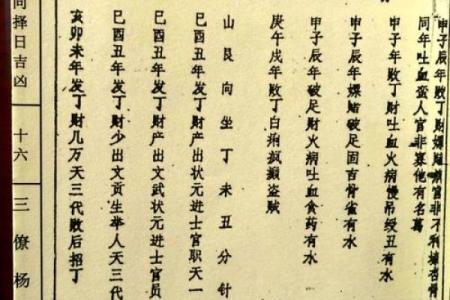 甲子辰年败丁财嫖赌官非不利杏骨
同年吐血蛮人官非寡他有名
甲子辰年败丁财吐血火病慢吊绶丑有水
甲子辰年嫖赌破足固吉骨雀有水
甲子辰年破足财火病吐血食药有水
庚午戌年败丁白痢疯癫盗贼
山艮向坐丁未丑分针
巳酉丑年发丁财产出状元进士官职天一
巳酉丑年发丁财产出文武状元进士官员
巳酉丑年发丁财少出文贡生举人天三代
亥卯未年发丁财几万天三代败后招丁
同择日吉凶
十六
三僚杨